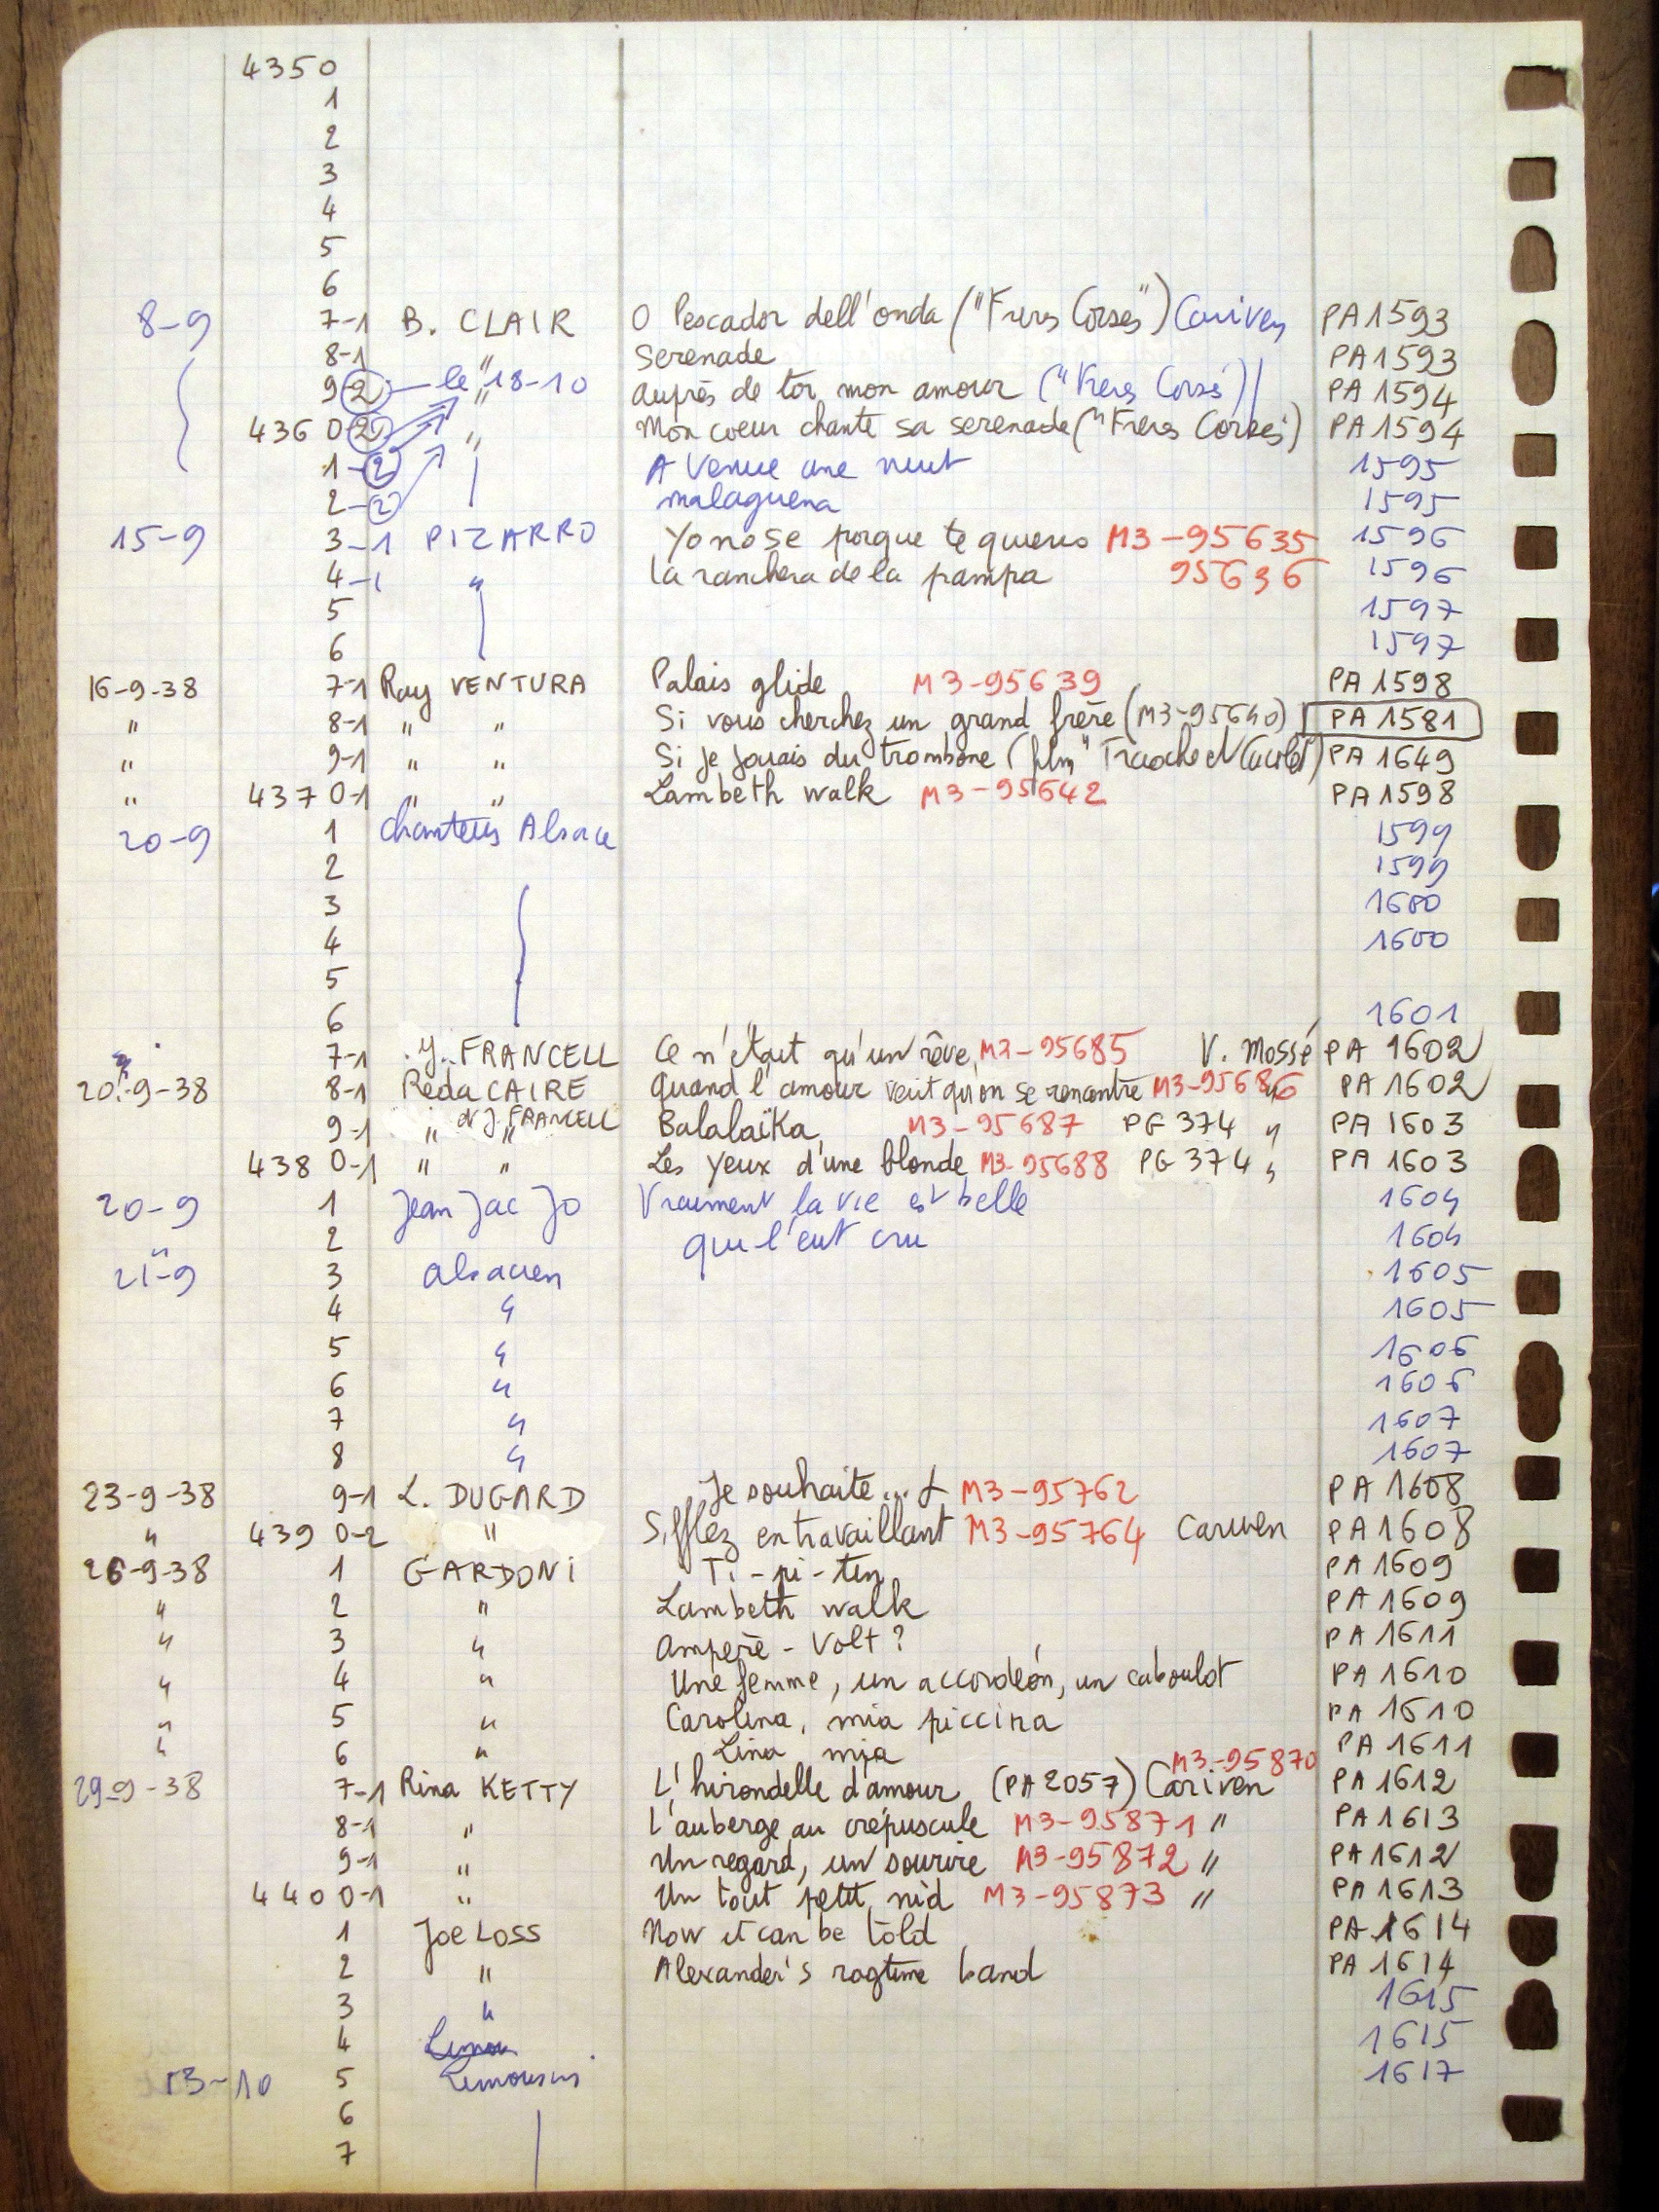 4350
1
2
3
4
5
6
8-9 7-1 B. CLAIR O Pescador dell'onda ("Freres Corses") Cariven PA 1593
8-1 " Serenade PA 1593
9 2 — le 18-10 " auprès de toi mon amour ("Freres Corses") PA 1594
436 0 2 " Mon coeur chante sa serenade ("Freres Corses") PA 1594
1-2 A Venise une nuit 1595
2-2 malaguena 1595
15-9 3-1 PIZARRO Yo no se porque te quiero M3-95635 1596
4-1 " la ranchera de la pampa 95636 1596
5 1597
6 1597
16-9-38 7-1 Ray VENTURA Palais glide M3-95639 PA 1598
" 8-1 " " Si vous cherchez un grand frère (M3-95640) PA 1581
" 9-1 " " Si je jouais du trombone (film "Tricoche et Cacolet") PA 1649
" 437 0-1 " " Lambeth walk M3-95642 PA 1598
20-9 1 chanteurs Alsace 1599
2 1599
3 1600
4 1600
5
6 1601
7-1 J. FRANCELL Ce n'était qu'un rêve M3-95685 V. Mossé PA 1602
20-9-38 8-1 Reda CAIRE Quand l'amour veut qu'on se rencontre M3-95686 " PA 1602
9-1 " et J. FRANCELL " Balalaïka M3-95687 PG 374 " PA 1603
438 0-1 " " Les yeux d'une blonde M3-95688 PG 374 " PA 1603
20-9 1 Jean Jac Jo Vraiment la vie est belle 1604
" 2 qui l'eut cru 1604
21-9 3 alsacien 1605
4 " 1605
5 " 1606
6 " 1606
7 " 1607
8 " 1607
23-9-38 9-1 L. DUGARD Je souhaite... M3-95762 PA 1608
" 439 0-2 " Sifflez en travaillant M3-95764 Cariven PA 1608
26-9-38 1 GARDONI Ti-pi-tin PA 1609
" 2 " Lambeth walk PA 1609
" 3 " Ampère - Volt ? PA 1611
" 4 " Une femme, un accordéon, un caboulot PA 1610
" 5 " Carolina, mia piccina PA 1610
" 6 " Lina mia PA 1611
29-9-38 7-1 Rina KETTY L'hirondelle d'amour (PA 2057) Cariven M3-95870 PA 1612
8-1 " L'auberge au crépuscule M3-95871 " PA 1613
9-1 " Un regard, un sourire M3-95872 " PA 1612
440 0-1 " Un tout petit nid M3-95873 " PA 1613
1 Joe LOSS Now it can be told PA 1614
2 " Alexander's ragtime band PA 1614
3 " 1615
4 1615
13-10 5 Limousins 1617
6
7